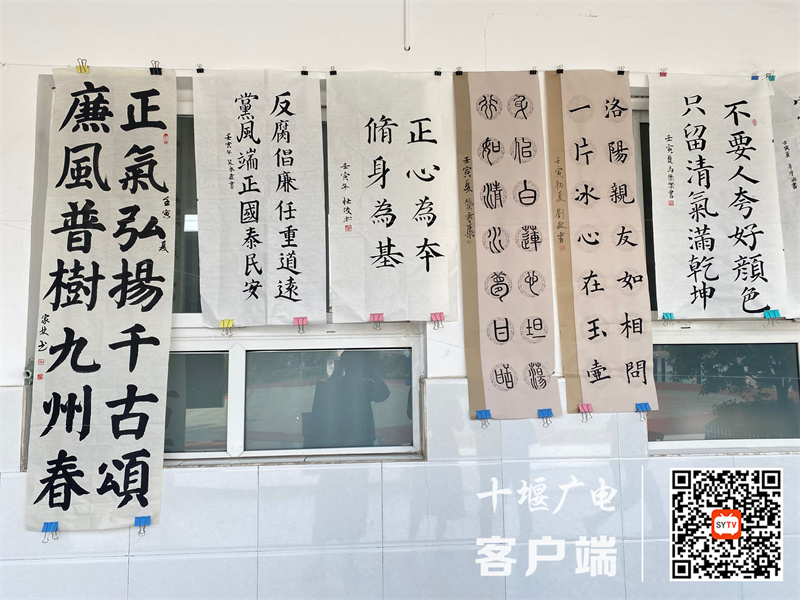 正氣弘揚千古頌
壬寅夏
廉風普樹九州春
反腐倡廉任重道遠
黨風端正國泰民安
壬寅年
正心為本
脩身為基
壬寅年
身似白蓮心坦蕩
行如清水夢甘甜
壬寅夏
洛陽親友如相問
一片冰心在玉壺
壬寅初夏
不要人夸好顏色
只留清氣滿乾坤
壬寅夏
十堰广电
客户端
SYTV